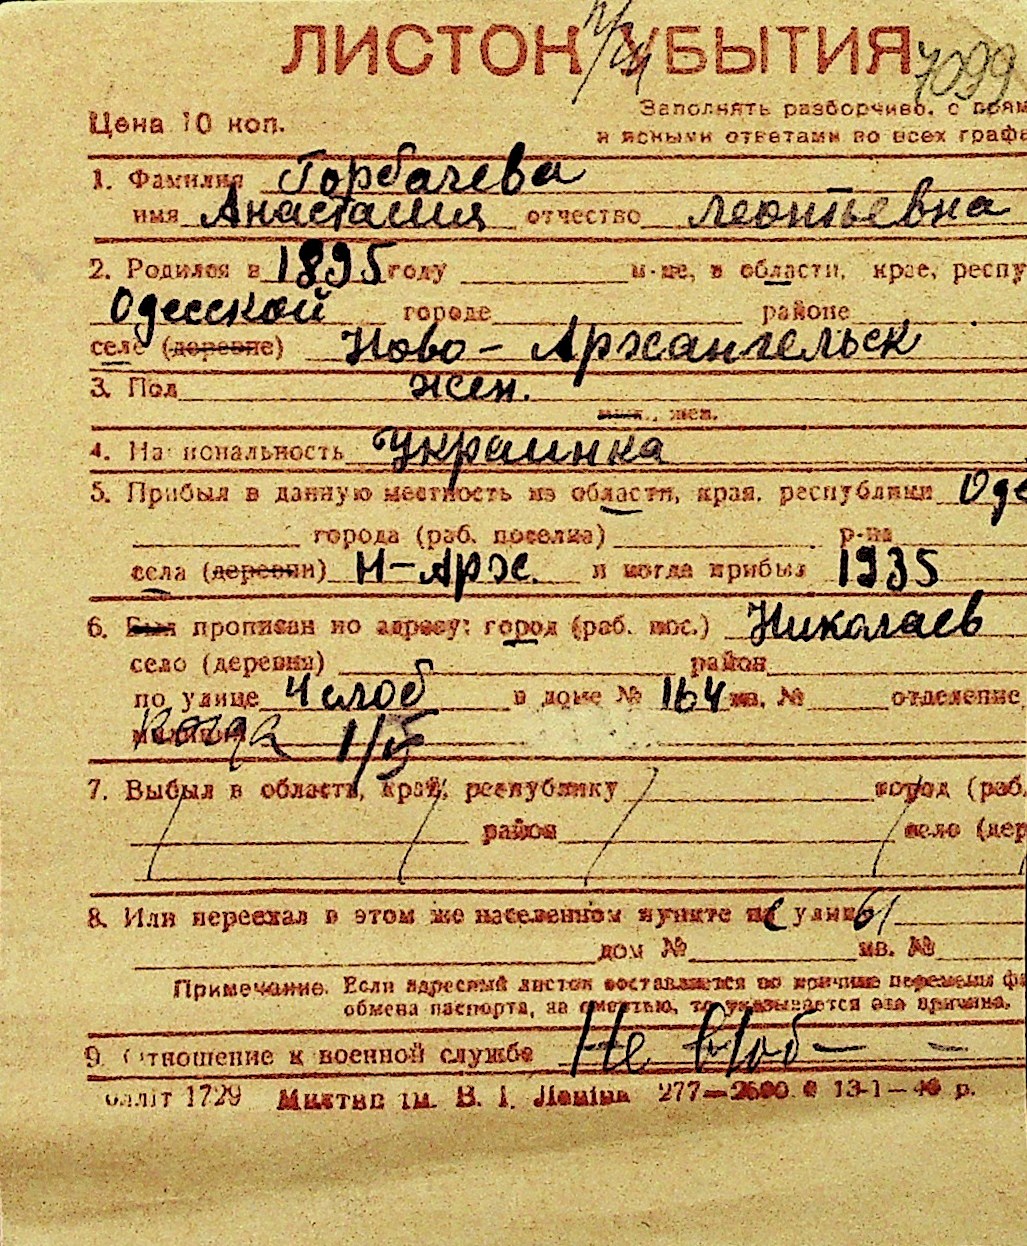 ЛИСТОК УБЫТИЯ
7099
Цена 10 коп.
Заполнять разборчиво, с прям
и ясными ответами во всех графа
1. Фамилия Горбачева
имя Анастасия отчество Леонтьевна
2. Родился в 1895 году м-це, в области, крае, респу
Одесской городе районе
селе (деревне) Ново-Архангельск
3. Пол жен.
муж., жен.
4. Национальность Украинка
5. Прибыл в данную местность из области, края, республики Оде
города (раб. поселка) р-на
села (деревни) Н-Арх. и когда прибыл 1935
6. Был прописан по адресу: город (раб. пос.) Николаев
село (деревня) район
по улице 4 слоб в доме № 164 кв. № отделение
когда 1/
7. Выбыл в область, край, республику город (раб.
район село (дер
8. Или переехал в этом же населенном пункте на улицу
дом № кв. №
Примечание. Если адресный листок составляется по причине перемены фа
обмена паспорта, за смертью, то указывается эта причина.
9. Отношение к военной службе Не в/об —
1729 Миктип ім. В. І. Леніна 277—2500 13-1-40 р.